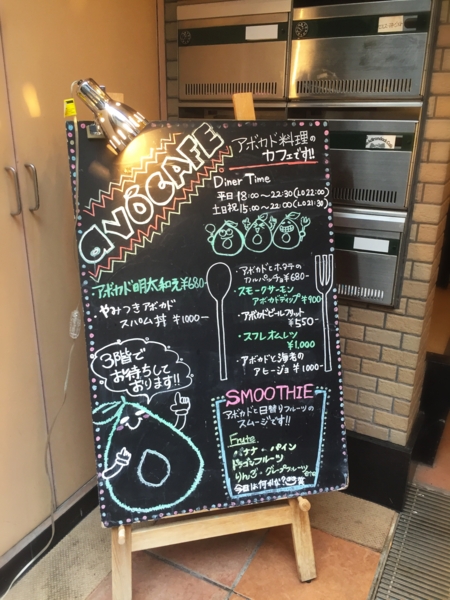 avócafe
アボカド料理の
カフェです!!
Diner Time
平日 18:00～22:30(LO 22:00)
土日祝 15:00～22:00(LO 21:30)
アボカド明太和え ¥680-
やみつきアボカド
スパム丼 ¥1000-
・アボカドとホタテの
カルパッチョ ¥680-
・スモークサーモン
アボカドディップ ¥900
・アボカドビールフリット
¥550-
・スフレオムレツ
¥1,000
・アボカドと海老の
アヒージョ ¥1000-
3階で
お待ちして
おります!!
SMOOTHIE
アボカドと日替りフルーツの
スムージです!!
Frute
バナナ・パイン
ドラゴンフルーツ
りんご・グレープフルーツ
今日は何かな?